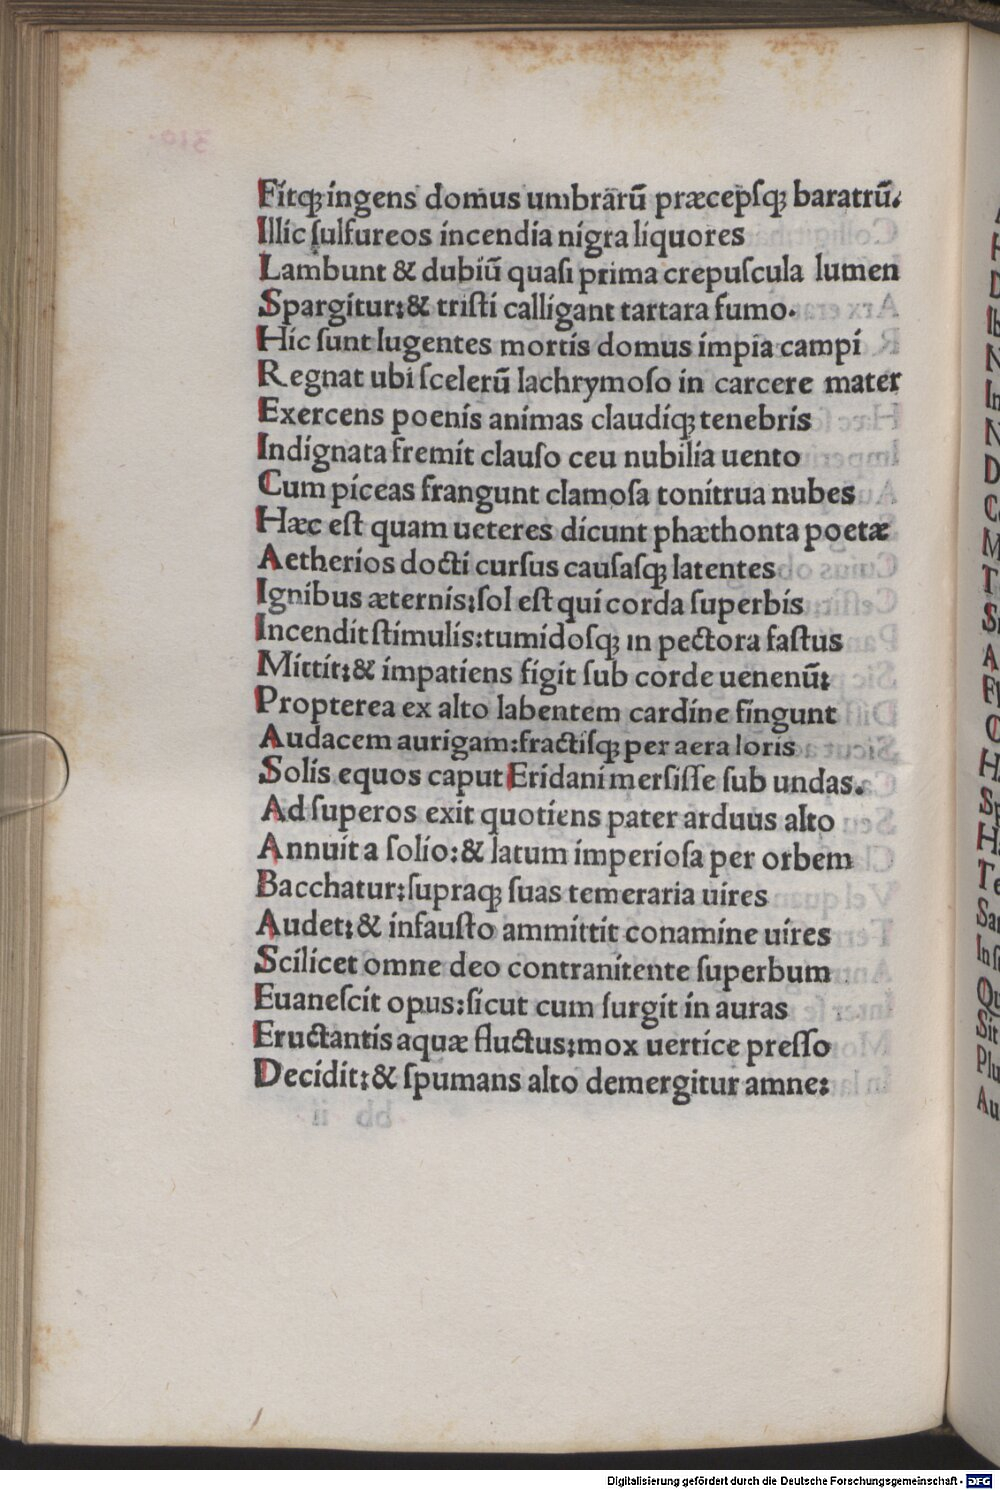 Fitqꝫ ingens domus umbrarū præcepſqꝫ baratrū.
Illic ſulfureos incendia nigra liquores
Lambunt & dubiū quaſi prima crepuſcula lumen
Spargitur:& triſti calligant tartara fumo.
Hic ſunt lugentes mortis domus impia campi
Regnat ubi ſcelerū lachrymoſo in carcere mater
Exercens poenis animas claudiqꝫ tenebris
Indignata fremit clauſo ceu nubilia uento
Cum piceas frangunt clamoſa tonitrua nubes
Hæc eſt quam ueteres dicunt phæthonta poetæ
Aetherios docti curſus cauſaſqꝫ latentes
Ignibus æternis:ſol eſt qui corda ſuperbis
Incendit ſtimulis:tumidoſqꝫ in pectora faſtus
Mittit:& impatiens figit ſub corde uenenū:
Propterea ex alto labentem cardine fingunt
Audacem aurigam:fractiſqꝫ per aera loris
Solis equos caput Eridani merſiſſe ſub undas.
Ad ſuperos exit quotiens pater arduus alto
Annuit a ſolio:& latum imperioſa per orbem
Bacchatur:ſupraqꝫ ſuas temeraria uires
Audet:& infauſto ammittit conamine uires
Scilicet omne deo contranitente ſuperbum
Euaneſcit opus:ſicut cum ſurgit in auras
Eructantis aquæ fluctus:mox uertice preſſo
Decidit:& ſpumans alto demergitur amne:
Digitalisierung gefördert durch die Deutsche Forschungsgemeinschaft - DFG